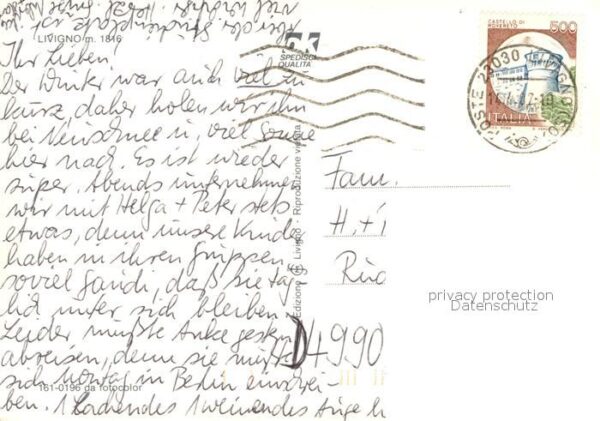 LIVIGNO m. 1816
Ihr Lieben!
Der Winter war auch viel zu
kurz, daher holen wir ihn
bei Neuschnee u. viel Sonne
hier nach. Es ist wieder
super. Abends unternehmen
wir mit Helga + Peter stets
etwas, denn unsere Kinder
haben in ihren Gruppen
soviel Gaudi, daß sie tag
unter sich bleiben.
Leider mußte Anke gestern
abreisen, denn sie mußte
sich Montag in Berlin
ben. 1 lachendes 1 weinendes Auge
161-0196 da fotocolor
SPEDISCI
QUALITÀ
Edizione Livigno - Riproduzione vietata
CASTELLO DI
ROVERETO
500
ITALIA
POSTE 23030 LIVIGNO
Fam.
H. +
D4990
privacy protection
Datenschutz